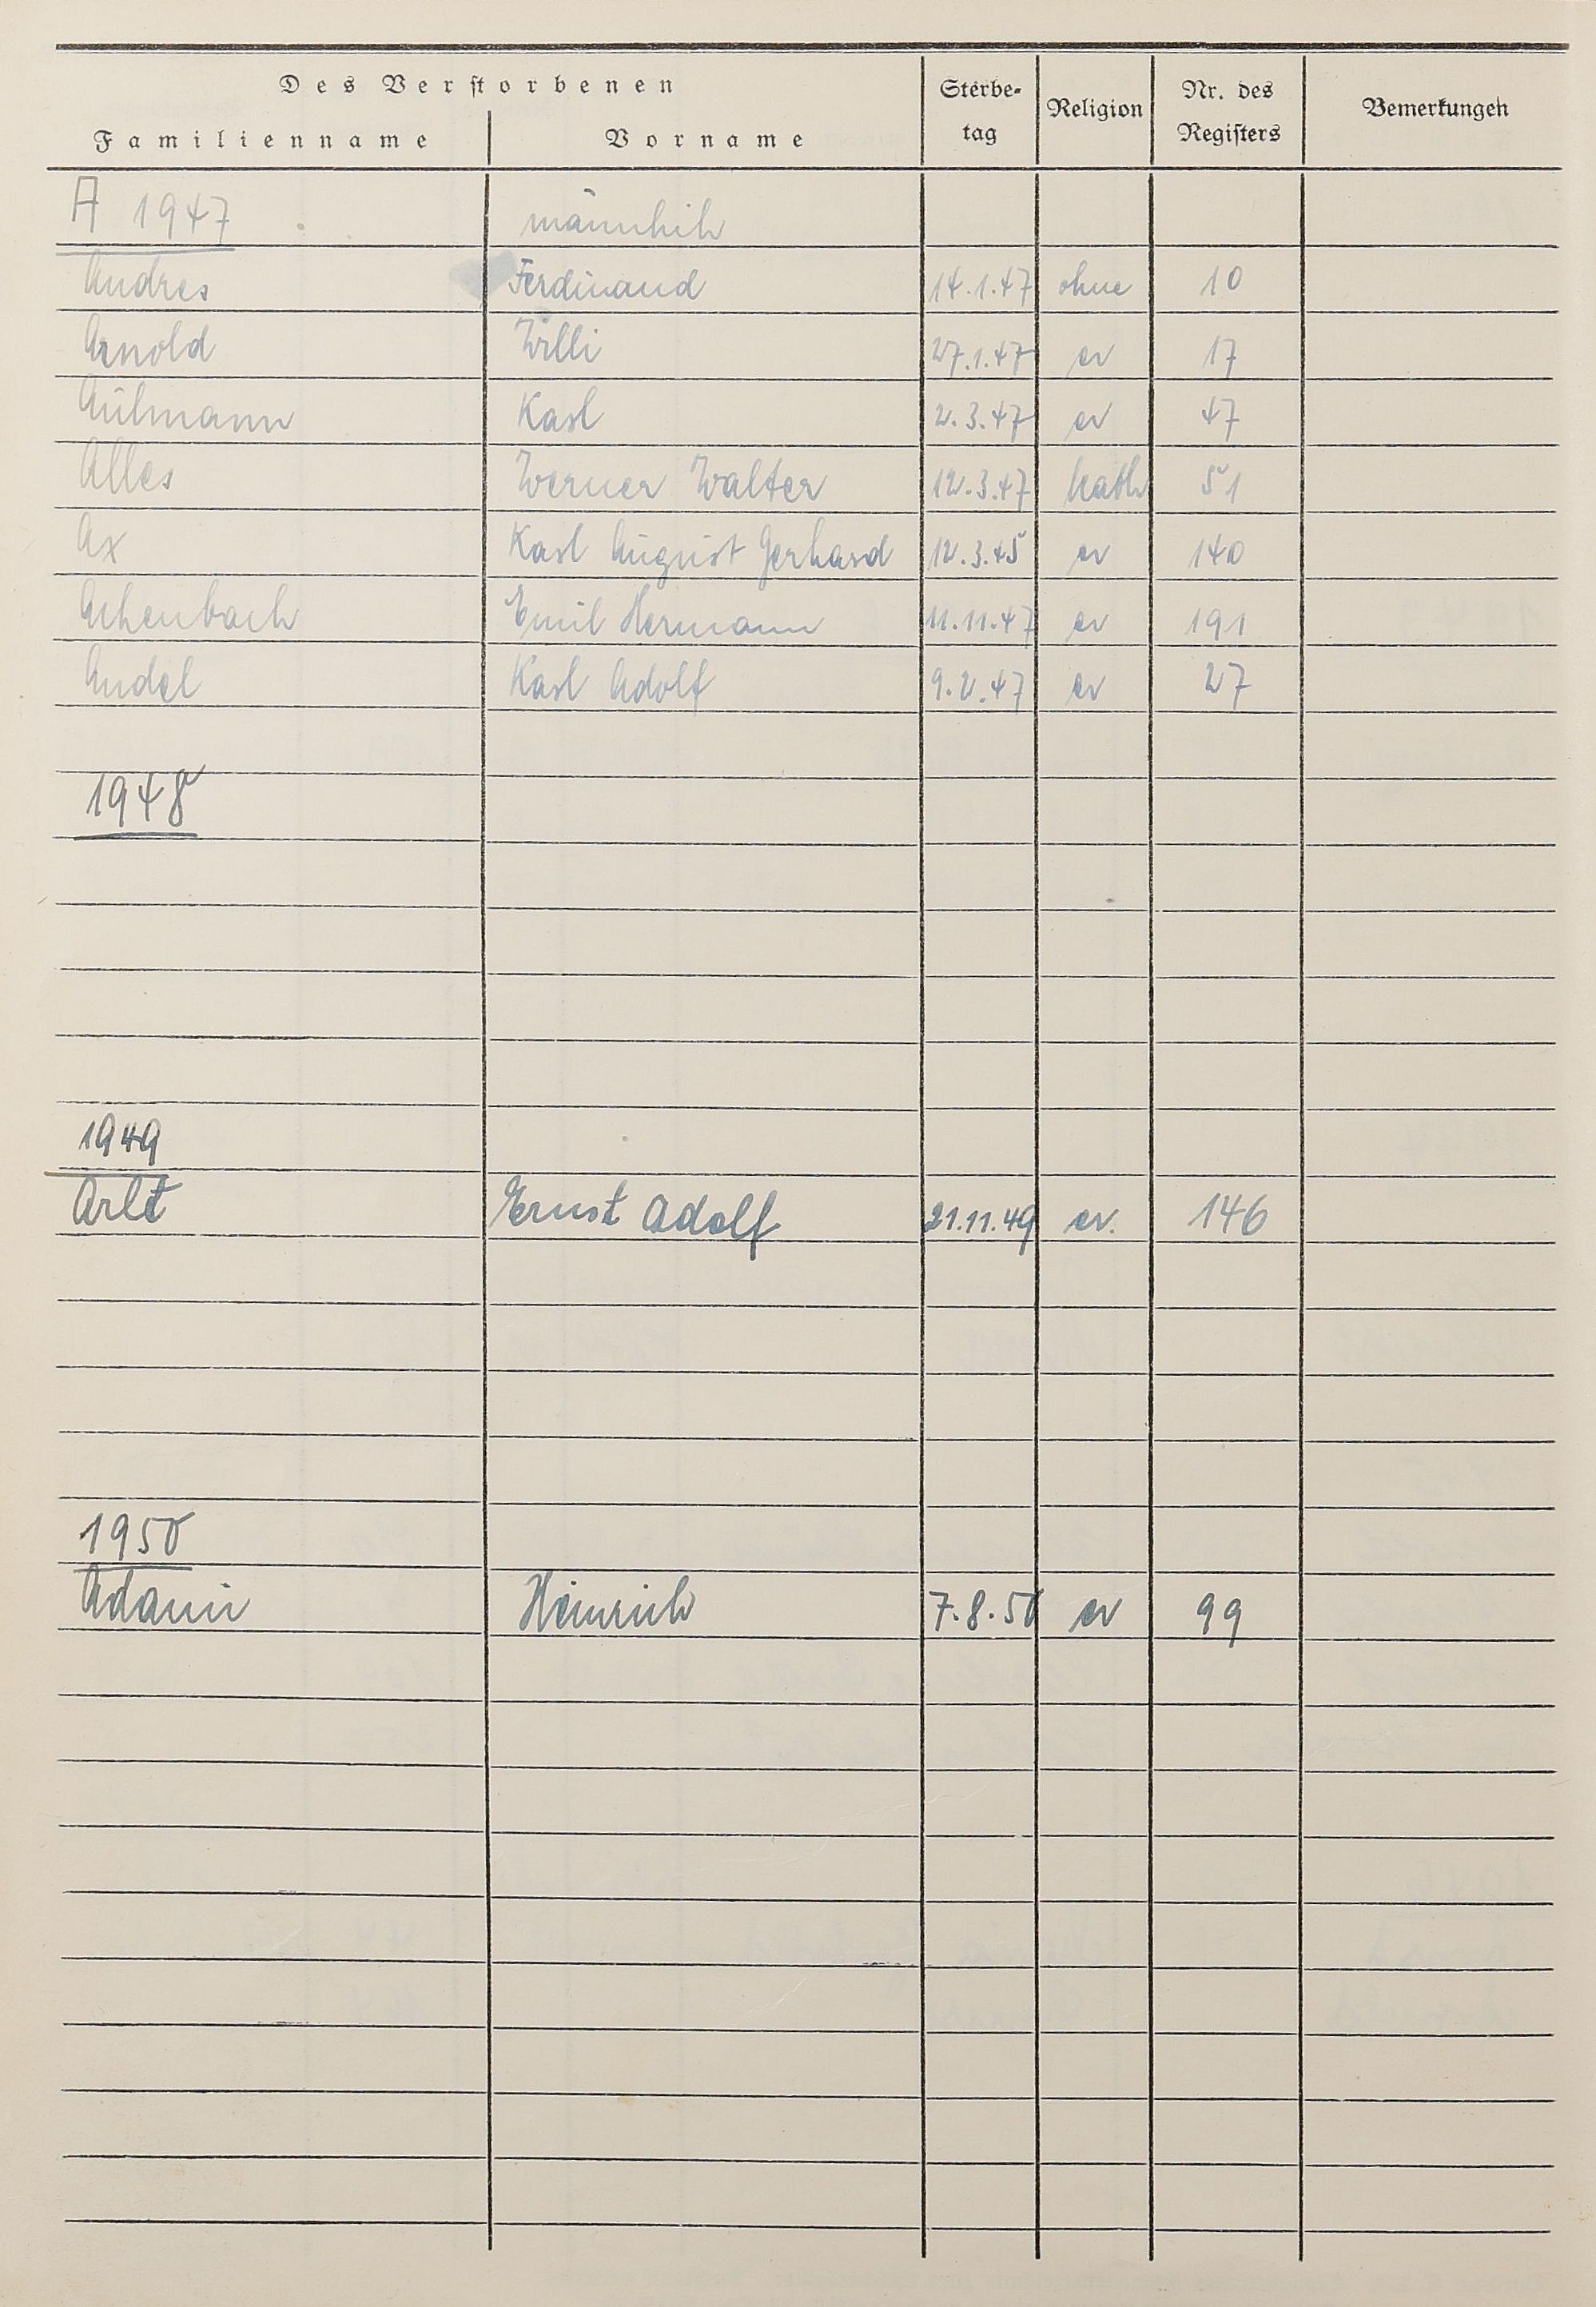 Des Verstorbenen
Familienname Vorname Sterbe-tag Religion Nr. des Registers Bemerkungen
A 1947 männlich
Andres Ferdinand 14.1.47 ohne 10
Arnold Willi 27.1.47 ev 17
Aulmann Karl 2.3.47 ev 47
Alles Werner Walter 12.3.47 kath 51
Ax Karl August Gerhard 12.3.45 ev 140
Achenbach Emil Hermann 11.11.47 ev 191
Andel Karl Adolf 9.2.47 ev 27
1948
1949
Arlt Ernst Adolf 21.11.49 ev. 146
1950
Adami Heinrich 7.8.50 ev 99